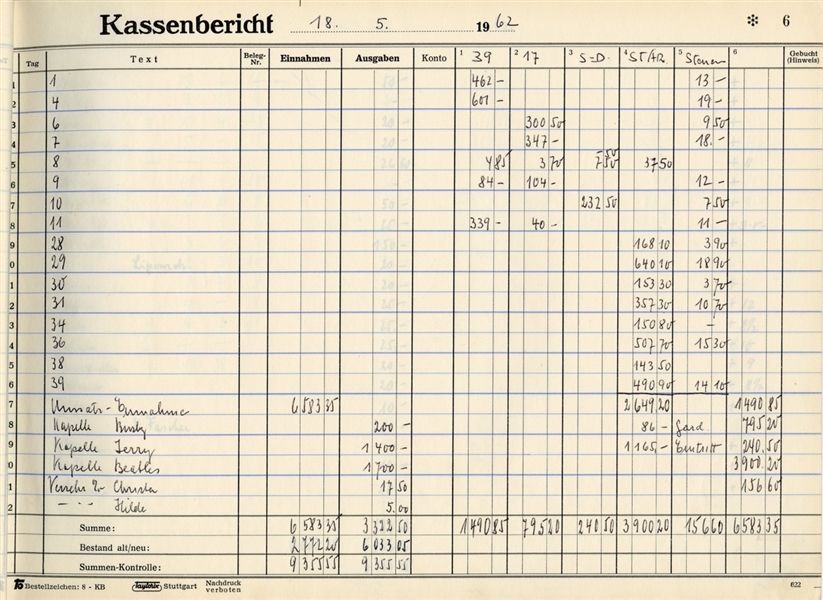 Kassenbericht 18. 5. 1962 * 6
Tag Text Beleg-Nr. Einnahmen Ausgaben Konto 1 39 2 17 3 S=D. 4 ST/AR. 5 Steuern 6 Gebucht (Hinweis)
1 1 462 – 13 –
2 4 601 – 19 –
3 6 300 50 9 50
4 7 347 – 18 –
5 8 4 85 3 70 7 50 37 50
6 9 84 – 104 – 12 –
7 10 232 50 7 50
8 11 339 – 40 – 11 –
9 28 168 10 3 90
0 29 640 10 18 90
1 30 153 30 3 70
2 31 357 30 10 70
3 34 150 80 –
4 36 507 70 15 30
5 38 143 50
6 39 490 90 14 10
7 Umsatz-Einnahme 6 583 35 2 649 20 1490 85
8 Kapelle 200 – 86 – Gard 795 20
9 Kapelle Jerry 1 400 – 1 165,– Eintritt 240,50
0 Kapelle Beatles 1 700 – 3 900.20
1 Christa 17 50 156 60
2 – " – Hilde 5.00
Summe: 6 583 35 3 322 50 1 490 85 795 20 240 50 3 900 20 156 60 6 583 35
Bestand alt/neu: 2 772 20 6 033 05
Summen-Kontrolle: 9 355 55 9 355 55
Bestellzeichen: 8 - KB Taylorix Stuttgart Nachdruck verboten 622